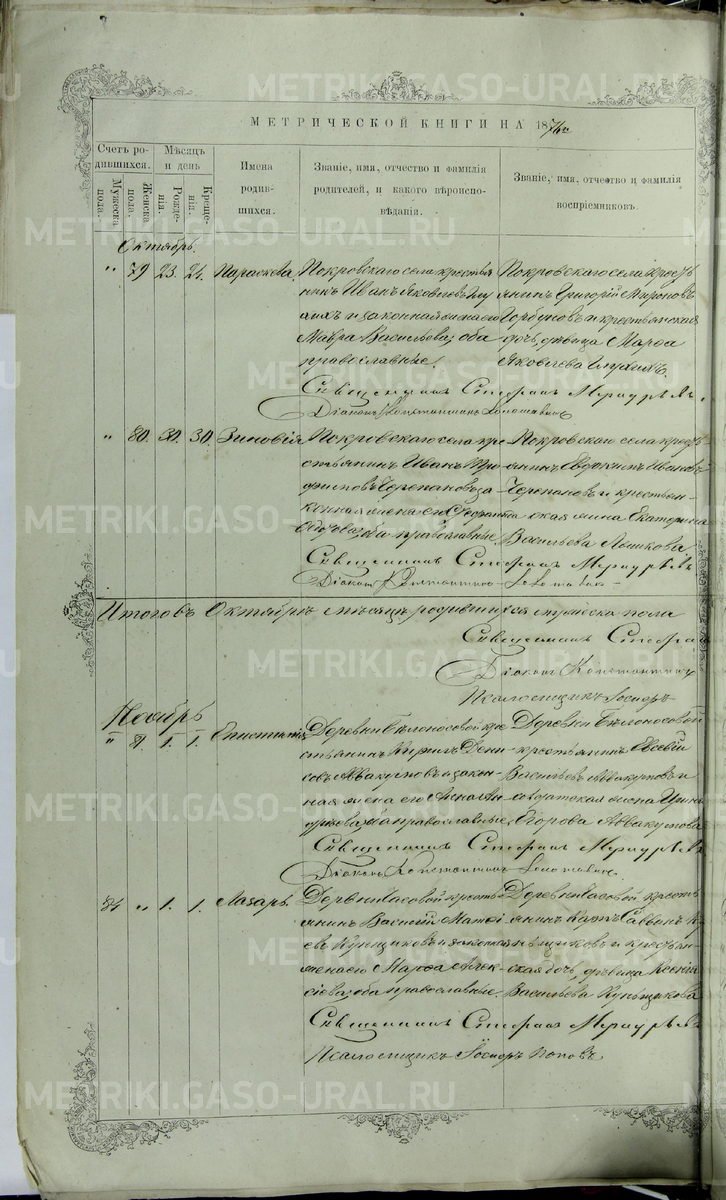 МЕТРИЧЕСКОЙ КНИГИ НА 1876
Счетъ ро-
дившихся.
Мѣсяцъ
и день
Мужеска
пола.
Женска
пола.
Рожде-
нія.
Креще-
нія.
Имена
родив-
шихся.
Званіе, имя, отчество и фамилія
родителей, и какого вѣроиспо-
вѣданія.
Званіе, имя, отчество и фамилія
воспріемниковъ.
Октябрь.
" 79 23. 24. Параскева.
Покровскаго села кресть
янинъ Иванъ Яковлевъ
и законная жена его
Мавра Васильева, оба
православные.
Покровскаго села крестъ
янинъ Григорій Мироновъ
Горбуновъ и крестьянская
дочь, дѣвица Марѳа
Яковлева
Священникъ Стефанъ
Діаконъ Константинъ
" 80. 30. 30. Зиновія
Покровскаго села кре
стьянинъ Иванъ
Черепановъ и за
конная жена его
оба православные.
Покровскаго села крестъ
янинъ Ивановъ
Черепановъ и крестьян-
ская жена Екатерина
Васильева
Священникъ Стефанъ
Діаконъ Константинъ
Итого въ Октябрѣ мѣсяцѣ родившихся мужеска пола
Священникъ Стефанъ
Діаконъ Константинъ
Псаломщикъ
Ноябрь
" 81. 1. 1.
Деревни Бѣлоносовой кре
стьянинъ Кирилъ Дени-
совъ Аввакумовъ и закон-
ная жена его
оба православные.
Деревни Бѣлоносовой
крестьянинъ Евсевій
Васильевъ Аввакумовъ и
жена
Егорова Аввакумова
Священникъ Стефанъ
Діаконъ Константинъ
84 " 1. 1. Лазарь.
Деревни Часовой кресть
янинъ Василій Матѳі
евъ Кунщиковъ и законная
жена его Марѳа Алек-
сіева, оба православные.
Деревни Часовой крестъ
янинъ Саввинъ Ку
нщиковъ и крестьян-
ская дочь, дѣвица Ксенія
Васильева Кунщикова
Священникъ Стефанъ
Псаломщикъ Поповъ
METRIKI.GASO-URAL.RU